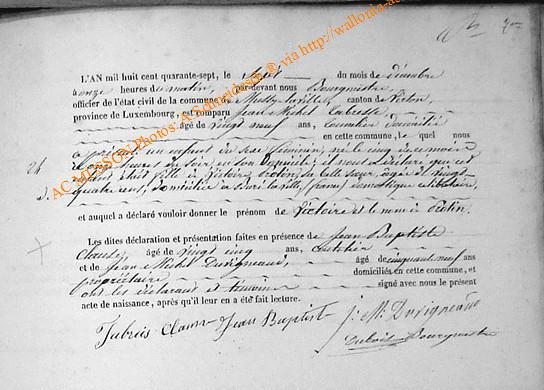 AC MUSSON Photos: A. Schneiders ® via http://wallonia-as
L'AN mil huit cent quarante-sept, le huit du mois de décembre
à onze heures du matin, par-devant nous Bourgmestre
officier de l'état civil de la commune de Mussy-la-ville, canton de Virton,
province de Luxembourg, est comparu Jean Michel
âgé de vingt neuf ans, domicilié
en cette commune, le quel nous
a présenté un enfant de sexe féminin, né le cinq de ce mois à
heures du soir en son domicile; il nous déclare que cet
enfant était fille à Victoire sa belle sœur, âgée de vingt
quatre ans, domiciliée à la ville, (france) domestique célibataire,
et auquel a déclaré vouloir donner le prénom de Victoire et le nom de
Les dites déclaration et présentation faites en présence de Jean Baptiste
Claude, âgé de vingt cinq ans,
et de Jean Michel Duvigneaud, âgé de cinquante neuf ans
propriétaire domiciliés en cette commune, et
ont les déclarant et témoins signé avec nous le présent
acte de naissance, après qu'il leur en a été fait lecture.
Jean Baptist
J: M: Duvigneaud
Dubois Bourgmestre